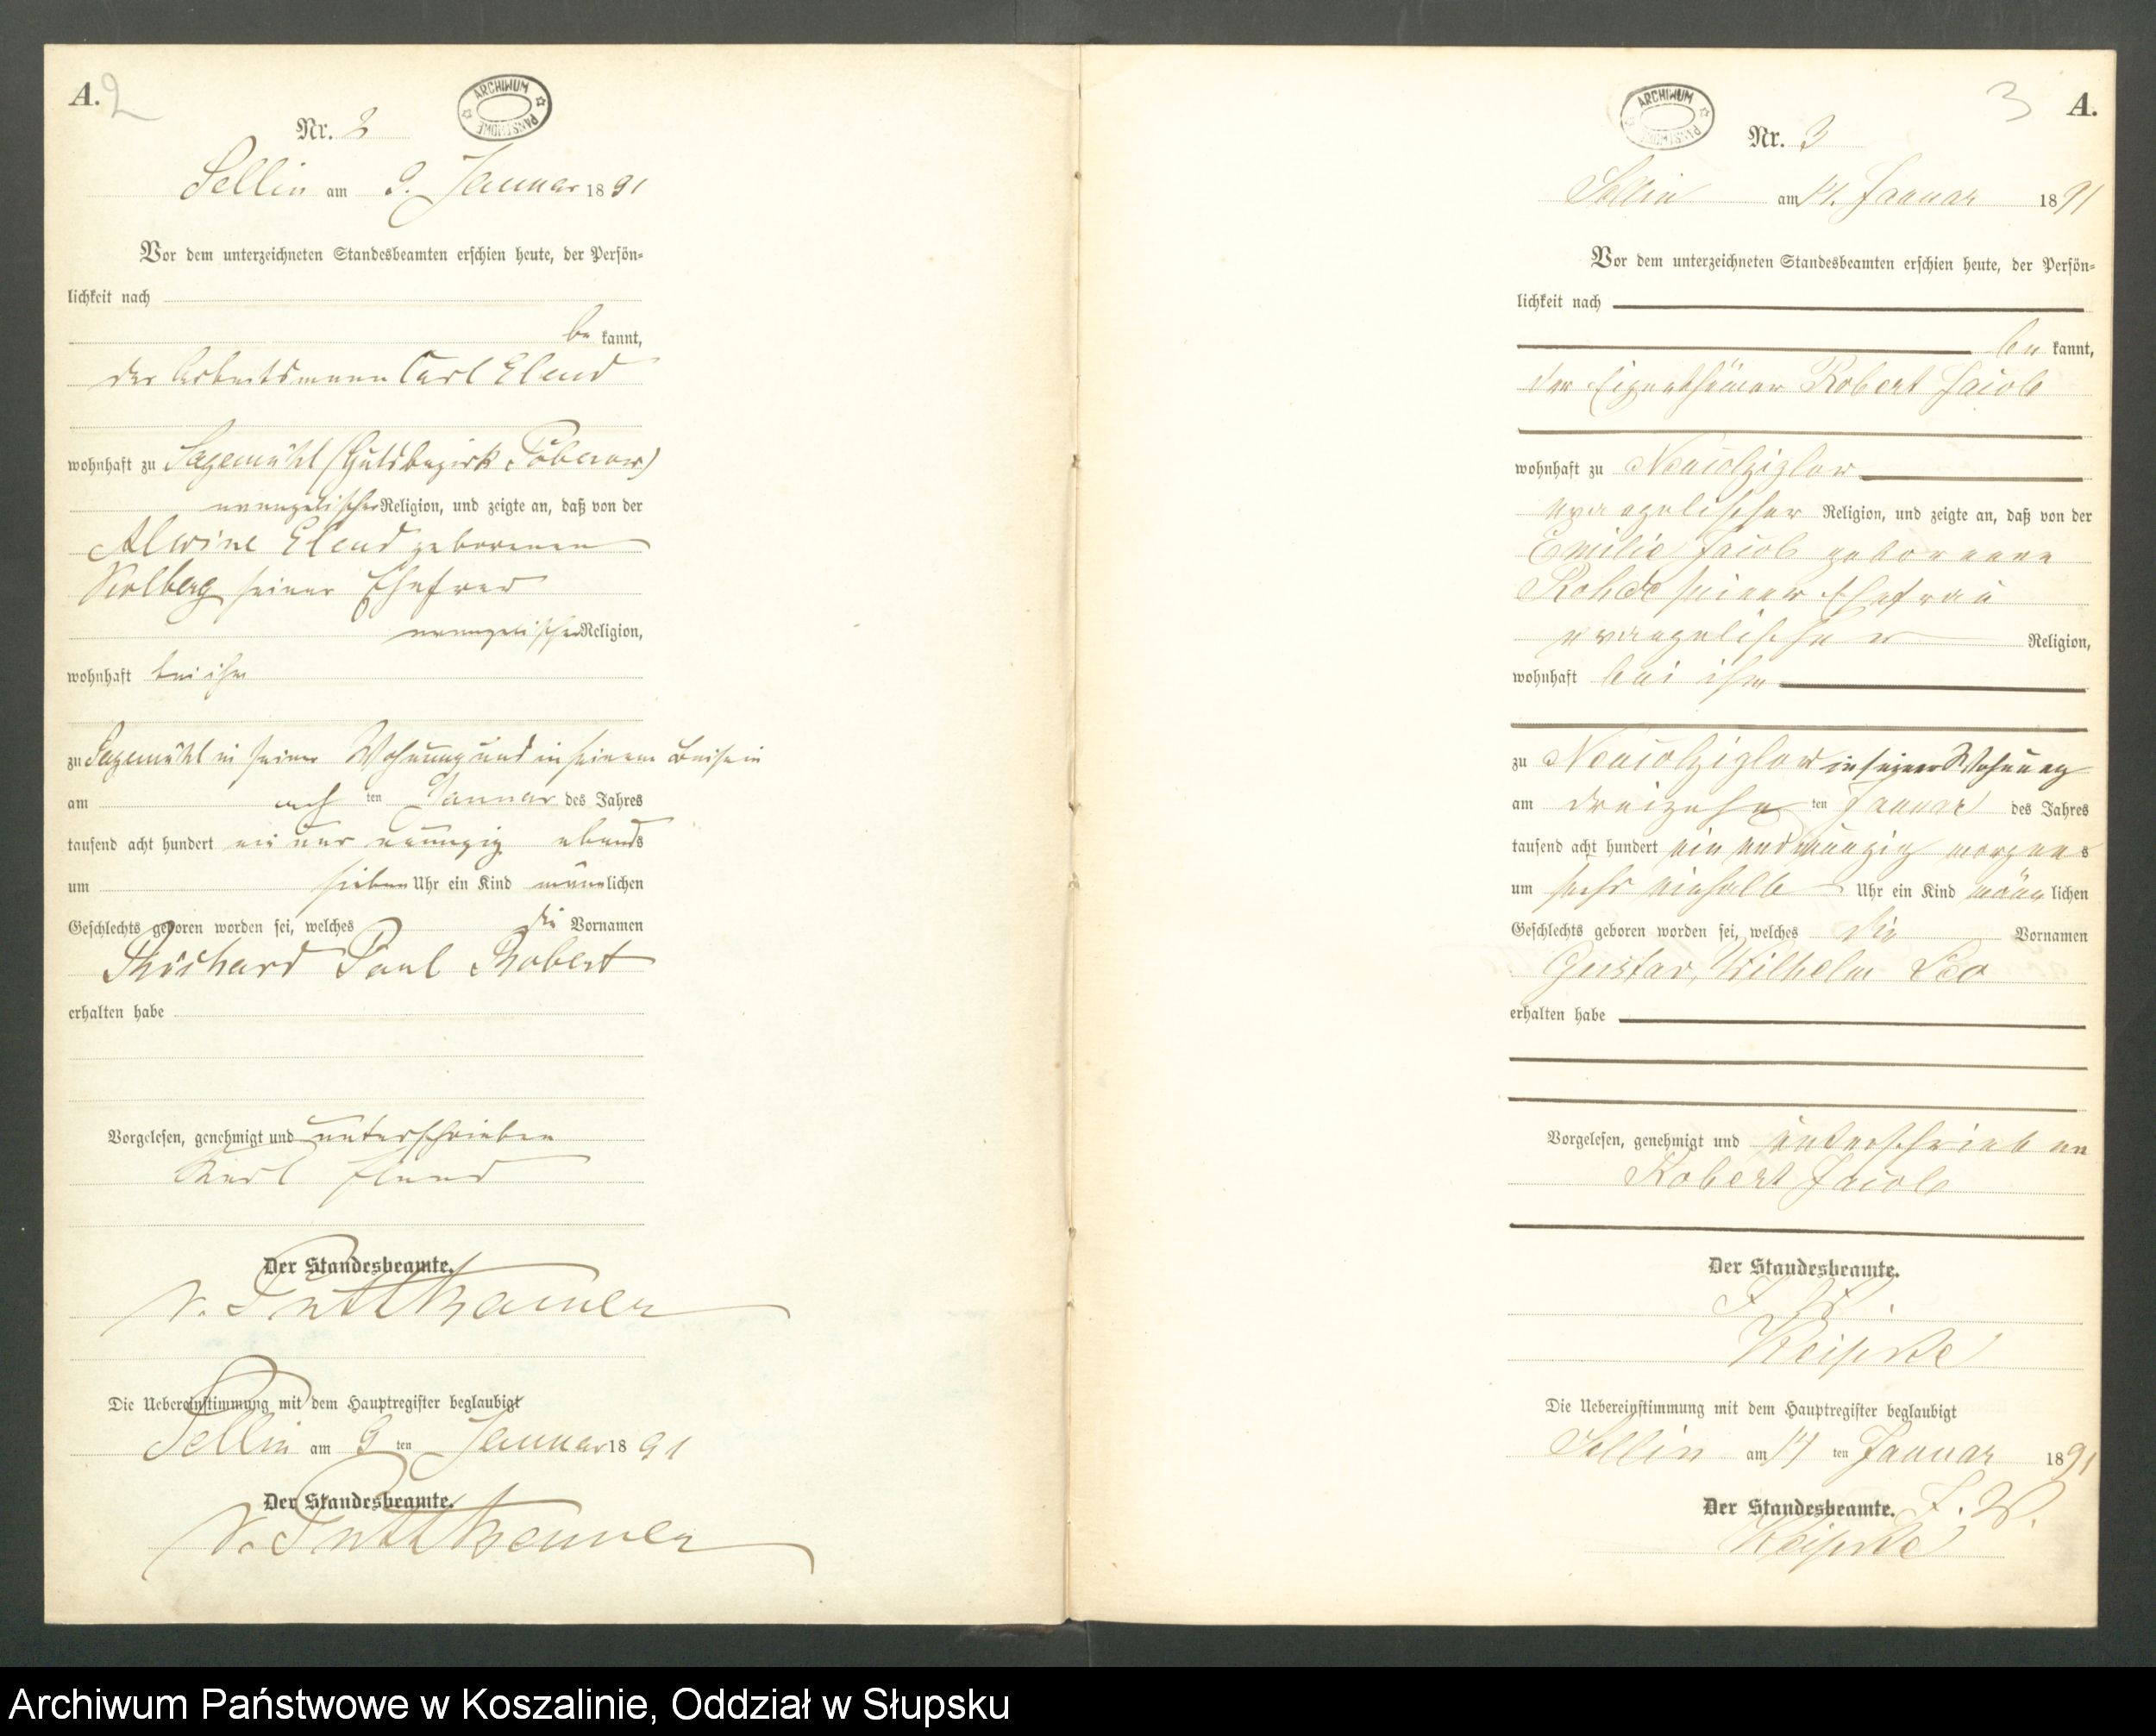 A. 2
ARCHIWUM PAŃSTWOWE
Nr. 2
Sellin am 9. Januar 1891
Vor dem unterzeichneten Standesbeamten erschien heute, der Persön-
lichkeit nach
be kannt,
der Arbeitsmann Carl Elend
wohnhaft zu Sagemühl (Gutsbezirk Poberow)
evangelischer Religion, und zeigte an, daß von der
Alwine Elend geborenen
Kolberg seiner Ehefrau
evangelischer Religion,
wohnhaft bei ihm
zu Sagemühl in seiner Wohnung und in seinem Beisein
am acht ten Januar des Jahres
tausend acht hundert ein und neunzig abends
um sieben Uhr ein Kind männlichen
Geschlechts geboren worden sei, welches die Vornamen
Richard Paul Robert
erhalten habe
Vorgelesen, genehmigt und unterschrieben
Karl Elend
Der Standesbeamte.
v. Puttkamer
Die Uebereinstimmung mit dem Hauptregister beglaubigt
Sellin am 9 ten Januar 1891
Der Standesbeamte.
v. Puttkamer
3 A.
ARCHIWUM PAŃSTWOWE
Nr. 3
Sellin am 14. Januar 1891
Vor dem unterzeichneten Standesbeamten erschien heute, der Persön-
lichkeit nach
be kannt,
der Eigenthümer Robert Jacob
wohnhaft zu Neucolziglow
evangelischer Religion, und zeigte an, daß von der
Emilie Jacob geborenen
Rohde seiner Ehefrau
evangelischer Religion,
wohnhaft bei ihm
zu Neucolziglow in seiner Wohnung
am dreizehn ten Januar des Jahres
tausend acht hundert ein und neunzig morgens
um sechs einhalb Uhr ein Kind männlichen
Geschlechts geboren worden sei, welches die Vornamen
Gustav, Wilhelm Leo
erhalten habe
Vorgelesen, genehmigt und unterschrieben
Robert Jacob
Der Standesbeamte.
Die Uebereinstimmung mit dem Hauptregister beglaubigt
Sellin am 14 ten Januar 1891
Der Standesbeamte.
Archiwum Państwowe w Koszalinie, Oddział w Słupsku